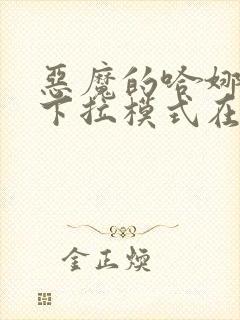 惡魔的哈娜
下拉模式在
金正煥